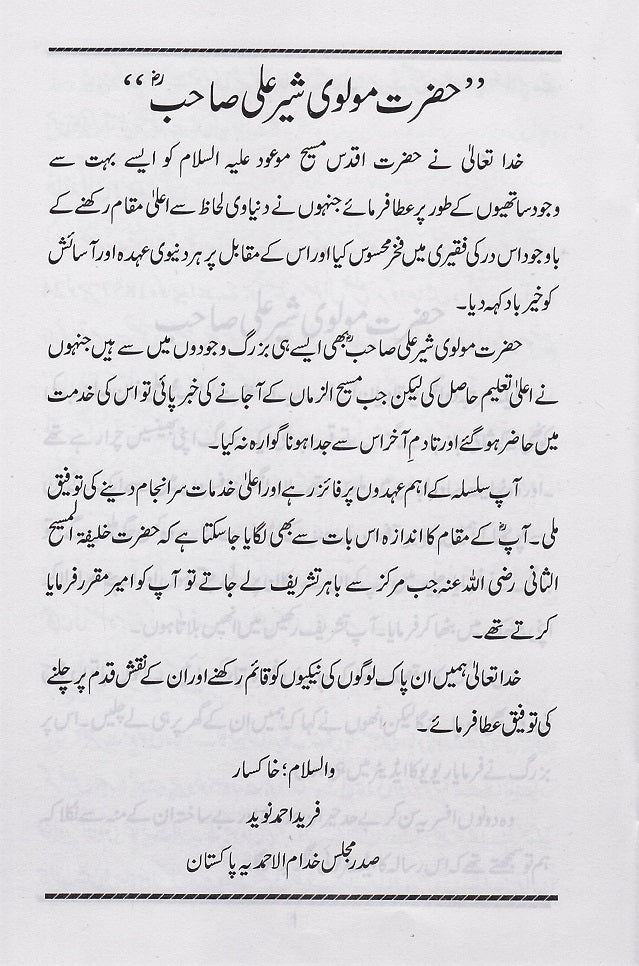 ”حضرت مولوی شیر علی صاحبؓ“
خدا تعالیٰ نے حضرت اقدس مسیح موعود علیہ السلام کو ایسے بہت سے
وجود ساتھیوں کے طور پر عطا فرمائے جنہوں نے دنیاوی لحاظ سے اعلیٰ مقام رکھنے کے
باوجود اس در کی فقیری میں فخر محسوس کیا اور اس کے مقابل پر ہر دنیوی عہدہ اور آسائش
کو خیر باد کہہ دیا۔
حضرت مولوی شیر علی صاحبؓ بھی ایسے ہی بزرگ وجودوں میں سے ہیں جنہوں
نے اعلیٰ تعلیم حاصل کی لیکن جب مسیح الزماں کے آجانے کی خبر پائی تو اس کی خدمت
میں حاضر ہو گئے اور تادمِ آخر اس سے جدا ہونا گوارہ نہ کیا۔
آپ سلسلہ کے اہم عہدوں پر فائز رہے اور اعلیٰ خدمات سرانجام دینے کی توفیق
ملی۔ آپؓ کے مقام کا اندازہ اس بات سے بھی لگایا جاسکتا ہے کہ حضرت خلیفۃ المسیح
الثانی رضی اللہ عنہ جب مرکز سے باہر تشریف لے جاتے تو آپ کو امیر مقرر فرمایا
کرتے تھے۔
خدا تعالیٰ ہمیں ان پاک لوگوں کی نیکیوں کو قائم رکھنے اور ان کے نقش قدم پر چلنے
کی توفیق عطا فرمائے۔
والسلام؛ خاکسار
فرید احمد نوید
صدر مجلس خدام الاحمدیہ پاکستان